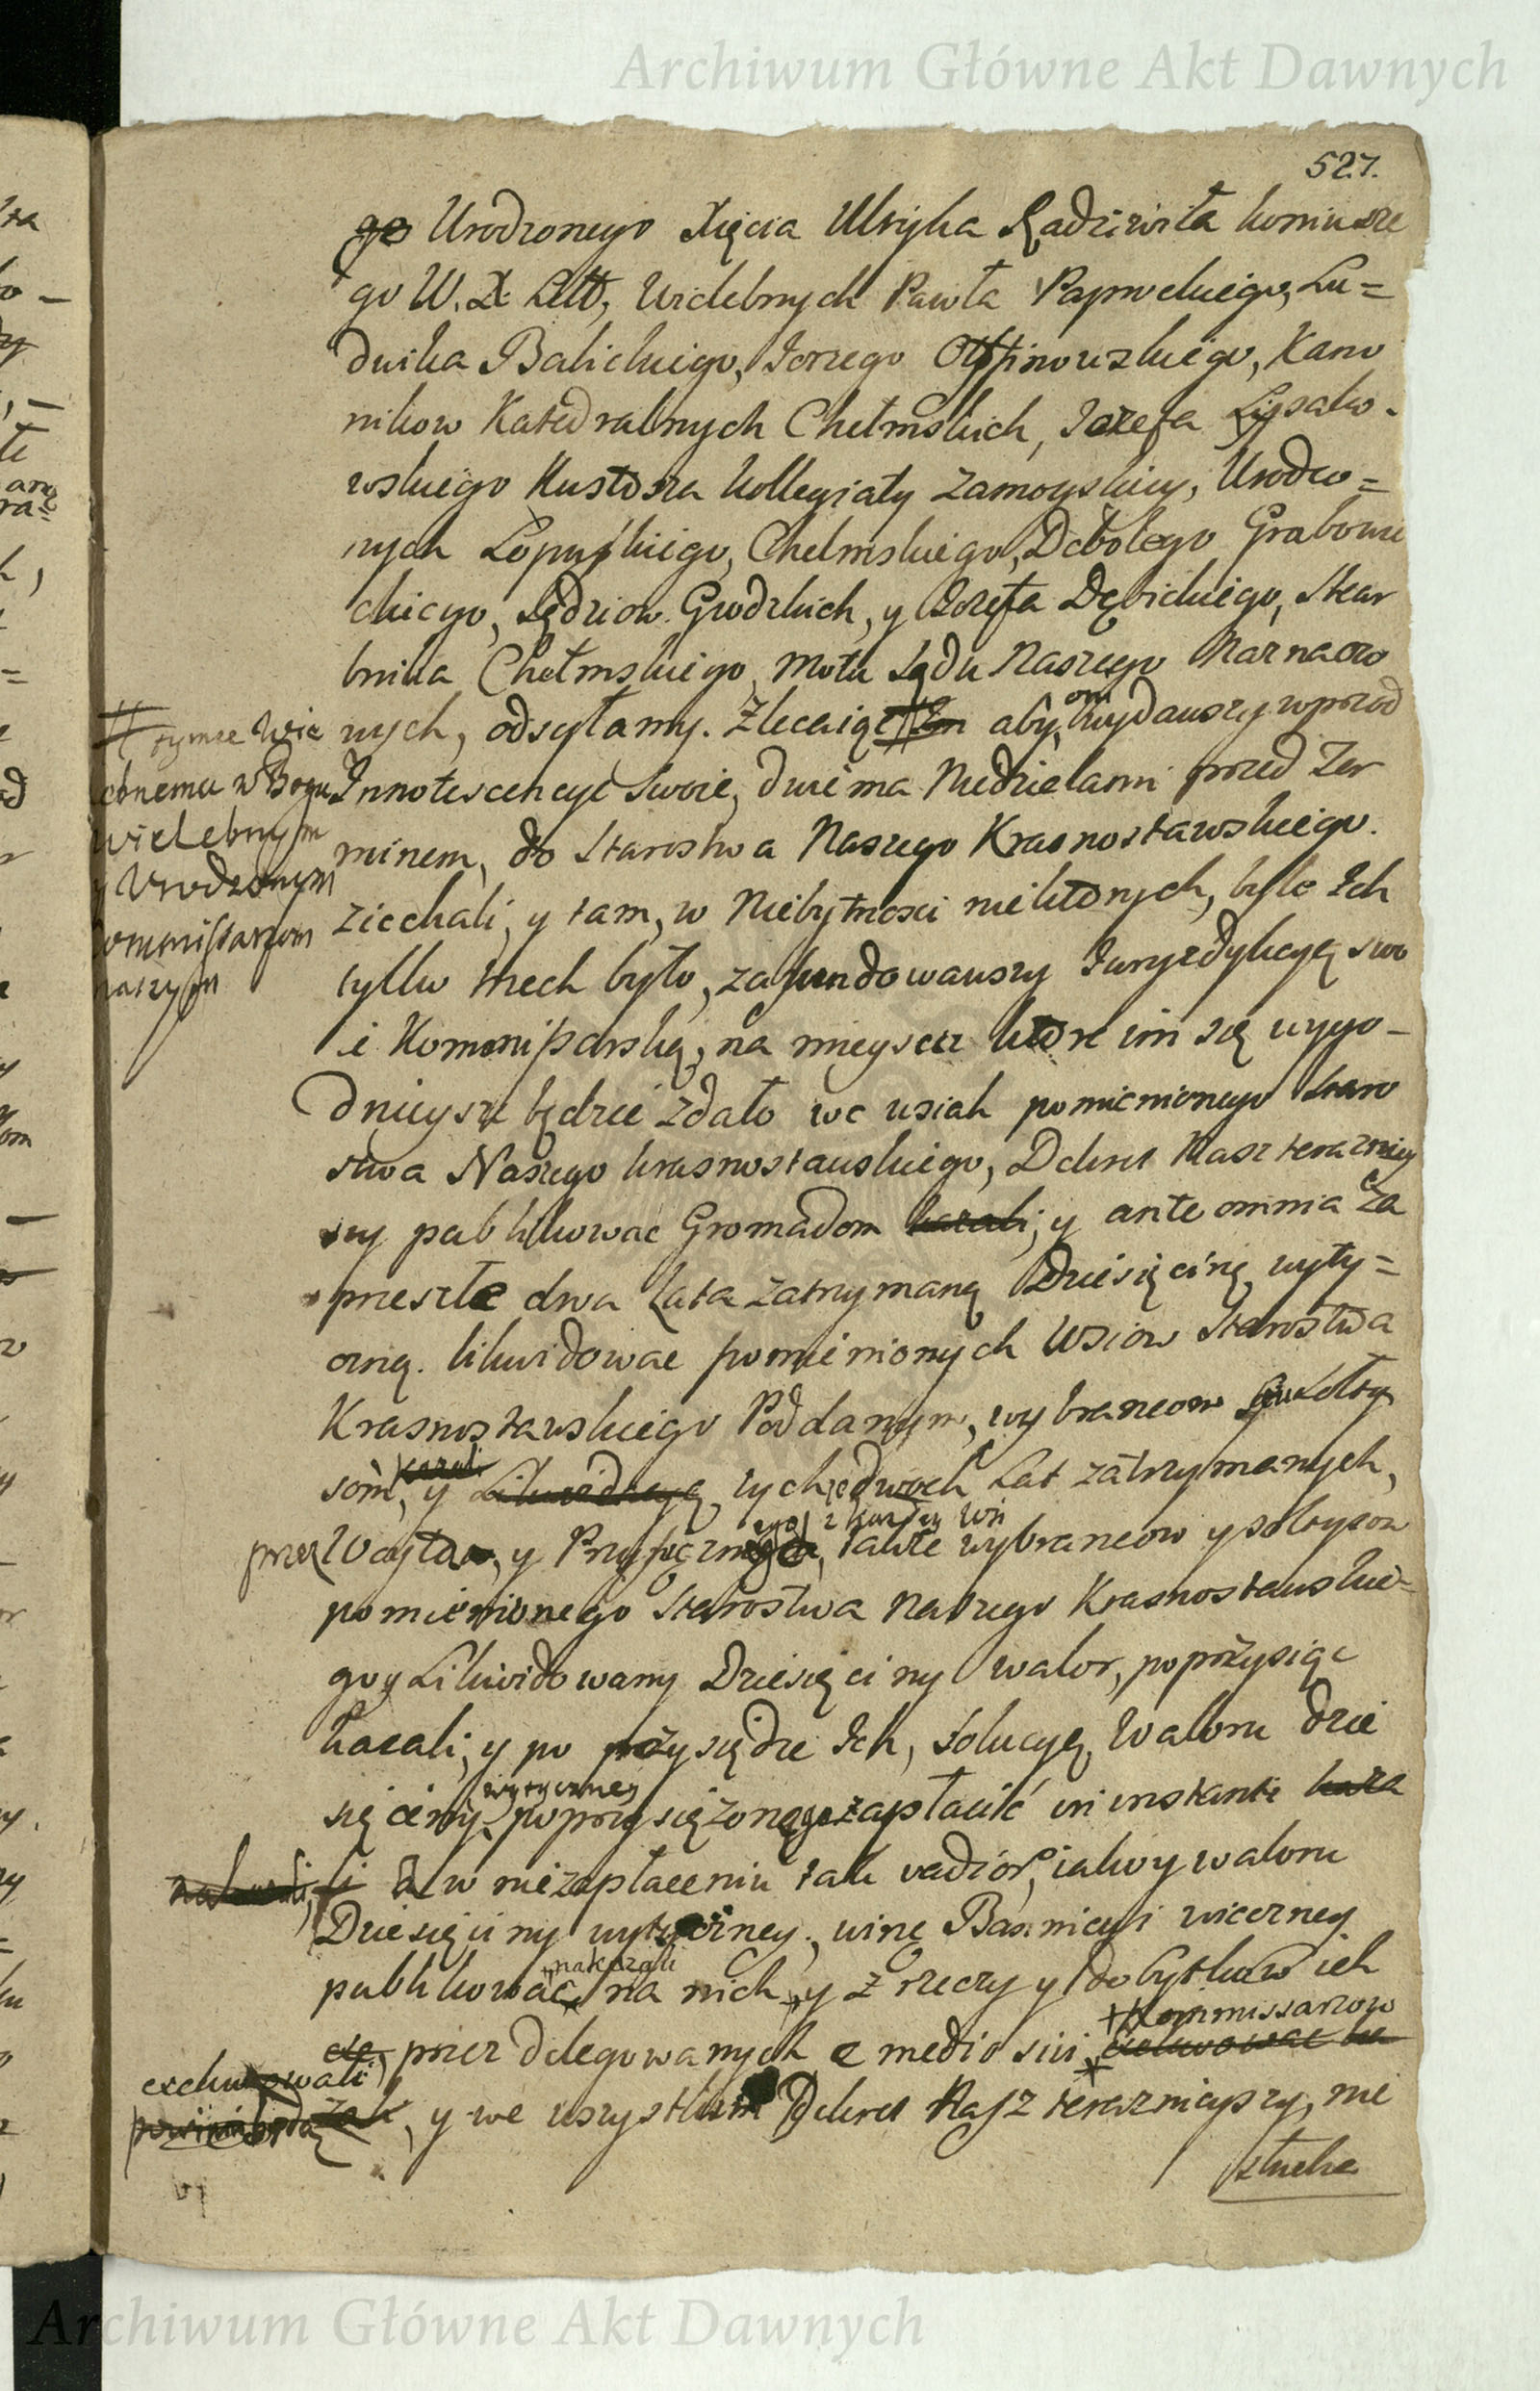 Archiwum Główne Akt Dawnych
527.
go Urodzonego Xięcia Ulryka Radziwiła koniusze
go W. X. Litt, Wielebnych Pawła Paprockiego, Lu=
dwika Balickiego, Jerzego Kano
nikow Katedralnych Chełmskich, Jozefa Łysako-
wskiego Kustosza kollegiaty Zamoyskiey, Urodzo=
nych Łopuskiego, Chełmskiego, Debolego Grabowie
ckiego, Sędziow Grodzkich, y Jozefa Dębickiego, Skar
bnika Chełmskiego, Motu Sądu Naszego Naznaczo
nych, odsyłamy. Zlecaiąc # aby oni wydawszy wprzod
# tymże Wie
lebnemu w Bogu
Wielebnym
y Urodzonym
Kommissarzom
naszym
Innotescencye swoie, dwiema Niedzielami przed Ter
minem, do Starostwa Naszego Krasnostawskiego
ziechali, y tam, w Niebytności niektorych, byle Ich
tylko trzech było, zafundowawszy Juryzdykcyą swo
ie Kommissarską, na mieyscu ktore im się wygo-
dnieysze będzie zdało we wsiah pomienionego Staro
stwa Naszego krasnostawskiego, Dekret Nasz terazniey
szy publikować Gromadom kazali, y ante omnia Za
przeszłe dwa Lata zatrzymaną Dziesięcinę wyty=
czną. likwidowac pomienionych Wsiow Starostwa
Krasnostawskiego Poddanym, wybrancom Szołty
som, kazali y Likwidacyą tych dwoch Lat zatrzymanych,
przez Woyta, y Przysięznego z kazdey Wsi, także wybrancow y szołtysow
pomienionego Starostwa Naszego Krasnostawskie=
go, y Likwidowany Dziesięciny walor, poprzysiąc
kazali, y po przysiędze Ich, solucyą Waloru dzie
sięciny wytyczney poprzysięzonego zapłacić in instanti kaza
nakazali, li A w niezapłaceniu tak vadiow, iako y waloru
Dziesięciny wytyczney, winę Bannicyi wieczney
publikować nakazali na nich, y z rzeczy y dobytkow ich
przez Delegowanych e medio sui + Kommissarzow
exekwowali
powinni będą, y we wszystkim Dekret Nasz teraznieyszy, nie
sztucke
Archiwum Główne Akt Dawnych